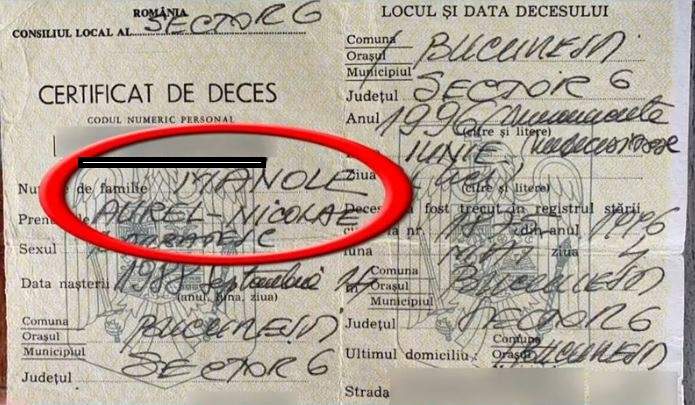 ROMÂNIA
CONSILIUL LOCAL AL SECTOR 6
CERTIFICAT DE DECES
CODUL NUMERIC PERSONAL
de familie MANOLE
AUREL-NICOLAE
Sexul
Data nașterii 1988 Septembrie
(anul, luna, ziua)
Comuna
Orașul BUCUREȘTI
Municipiul
Județul SECTOR 6
LOCUL ȘI DATA DECESULUI
Comuna
Orașul BUCUREȘTI
Municipiul
Județul SECTOR 6
Anul 1996
(cifre și litere)
IUNIE
ziua
(cifre și litere)
a fost trecut în registrul stării
nr. din anul 1996
luna ziua
Comuna
Orașul BUCUREȘTI
Municipiul
Județul SECTOR 6
Ultimul domiciliu: Comuna
Orașul BUCUREȘTI
Strada